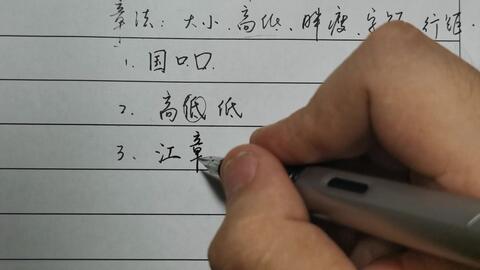 章法：大小、高低、胖瘦、字距、行距.
1. 国口口
2. 高低低
3. 江章